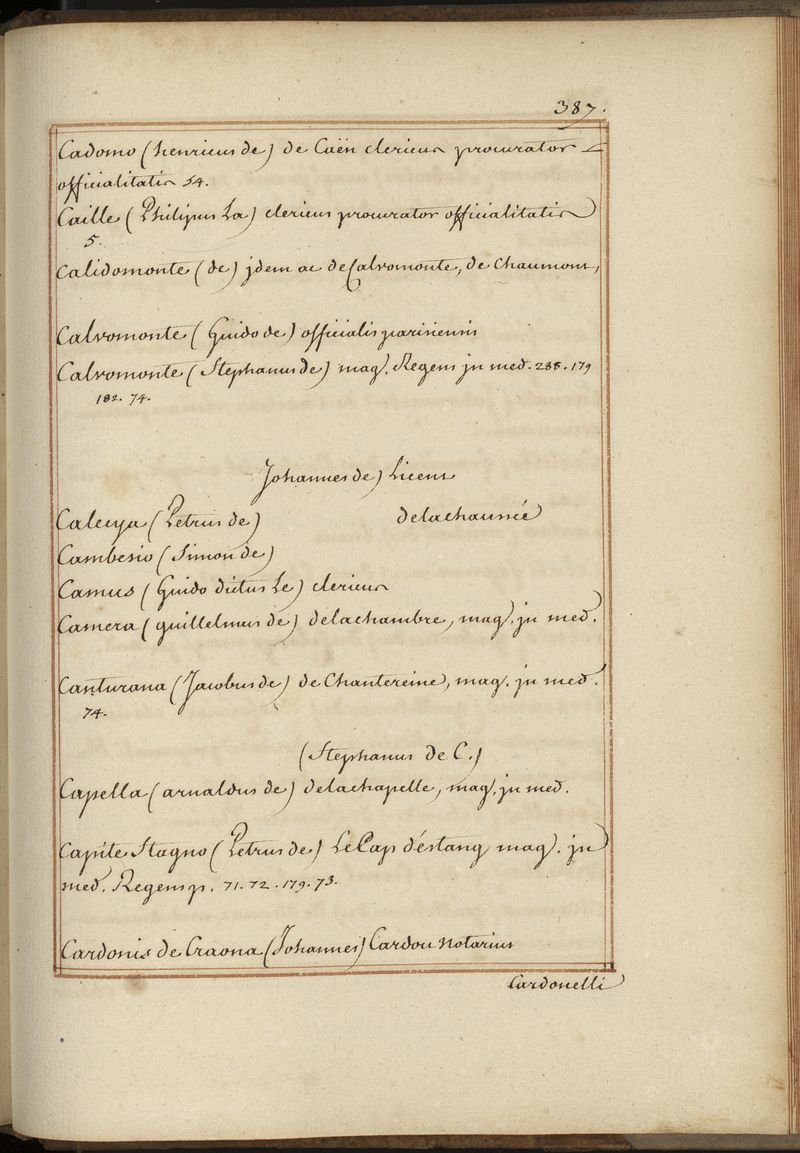 387.
Cadomo (henricus de) de Caën clericus procurator
officialitatis 54.
Caille (Philipus La) clericus procurator officialitatis
5.
Calidomonte (de) jdem ac de Calvomonte, de Chaumont,
Calvomonte (Guido de) officialis parisiensis
Calvomonte (Stephanus de) mag. Regens jn med. 288. 179
182. 74.
Johannes de) Licent
Calecya (Petrus de) delachaussée
Cambesio (Simon de)
Camus (Guido dictus Le) clericus
Camera (guillelmus de) delachambre, mag. jn med.
Canturana (Jacobus de) de Chantereine, mag. jn med.
74.
(Stephanus de C.)
Capella (arnaldus de) delachapelle, mag. jn med.
Capite Stagno (Petrus de) Le Cap d'éstang mag. jn
med. Regens p. 71. 72. 179. 73.
Cardonis de Craona (Johannes) Cardon notarius
Cardonelli